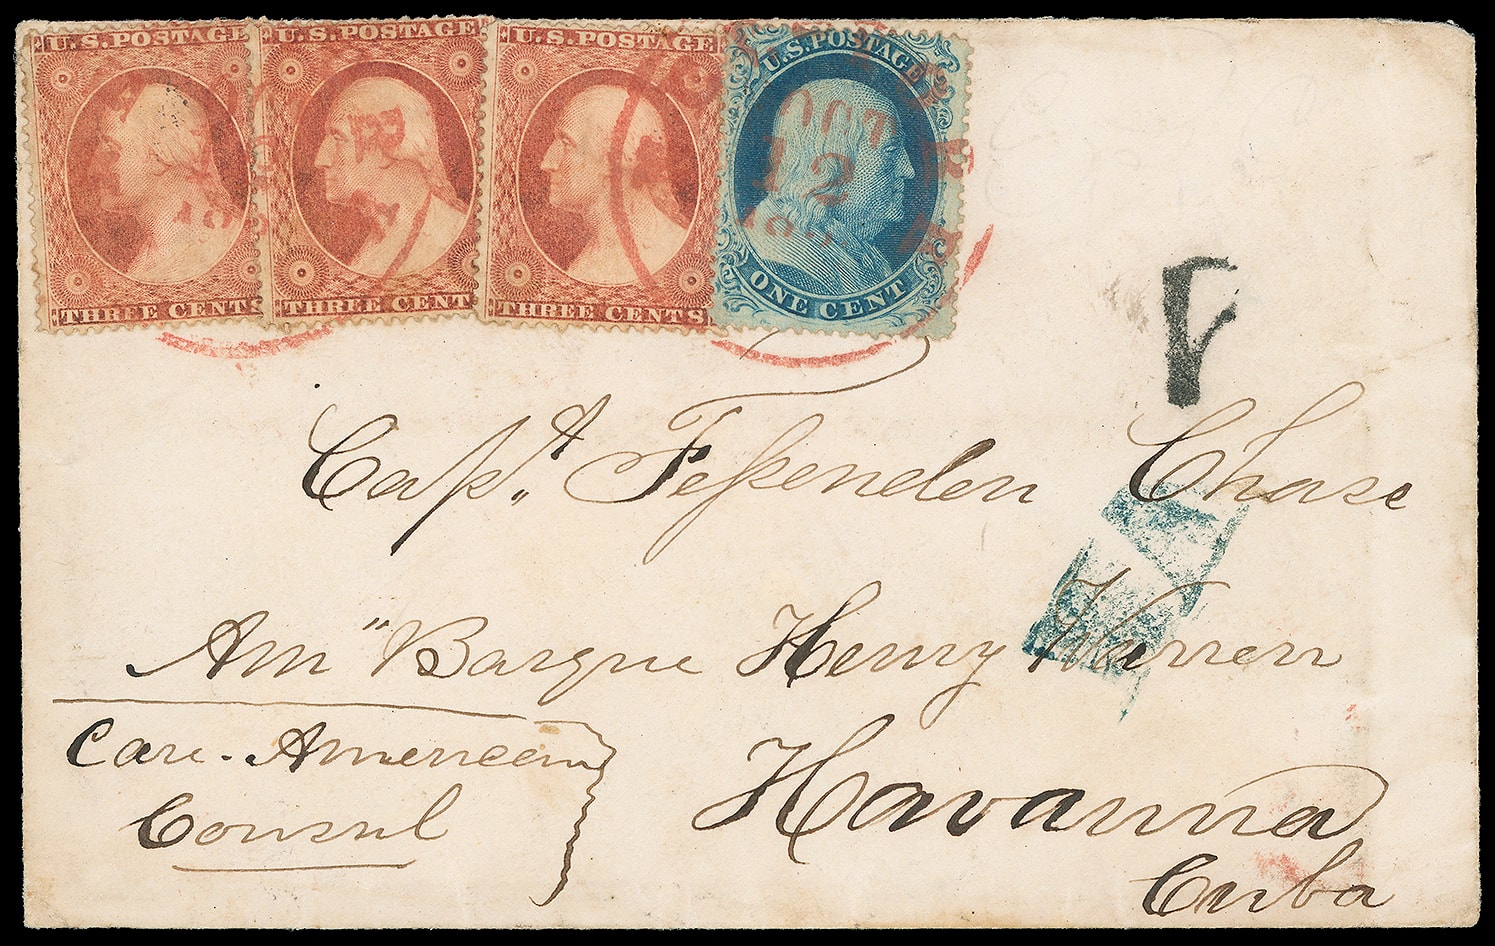 U.S. POSTAGE U.S. POSTAGE U.S. POSTAGE U.S. POSTAGE
OCT
12
THREE CENTS THREE CENTS THREE CENTS ONE CENT
Capt. Feſsenden Chase
Amn Barque Henry Warren
Care. American
Consul
Havanna
Cuba